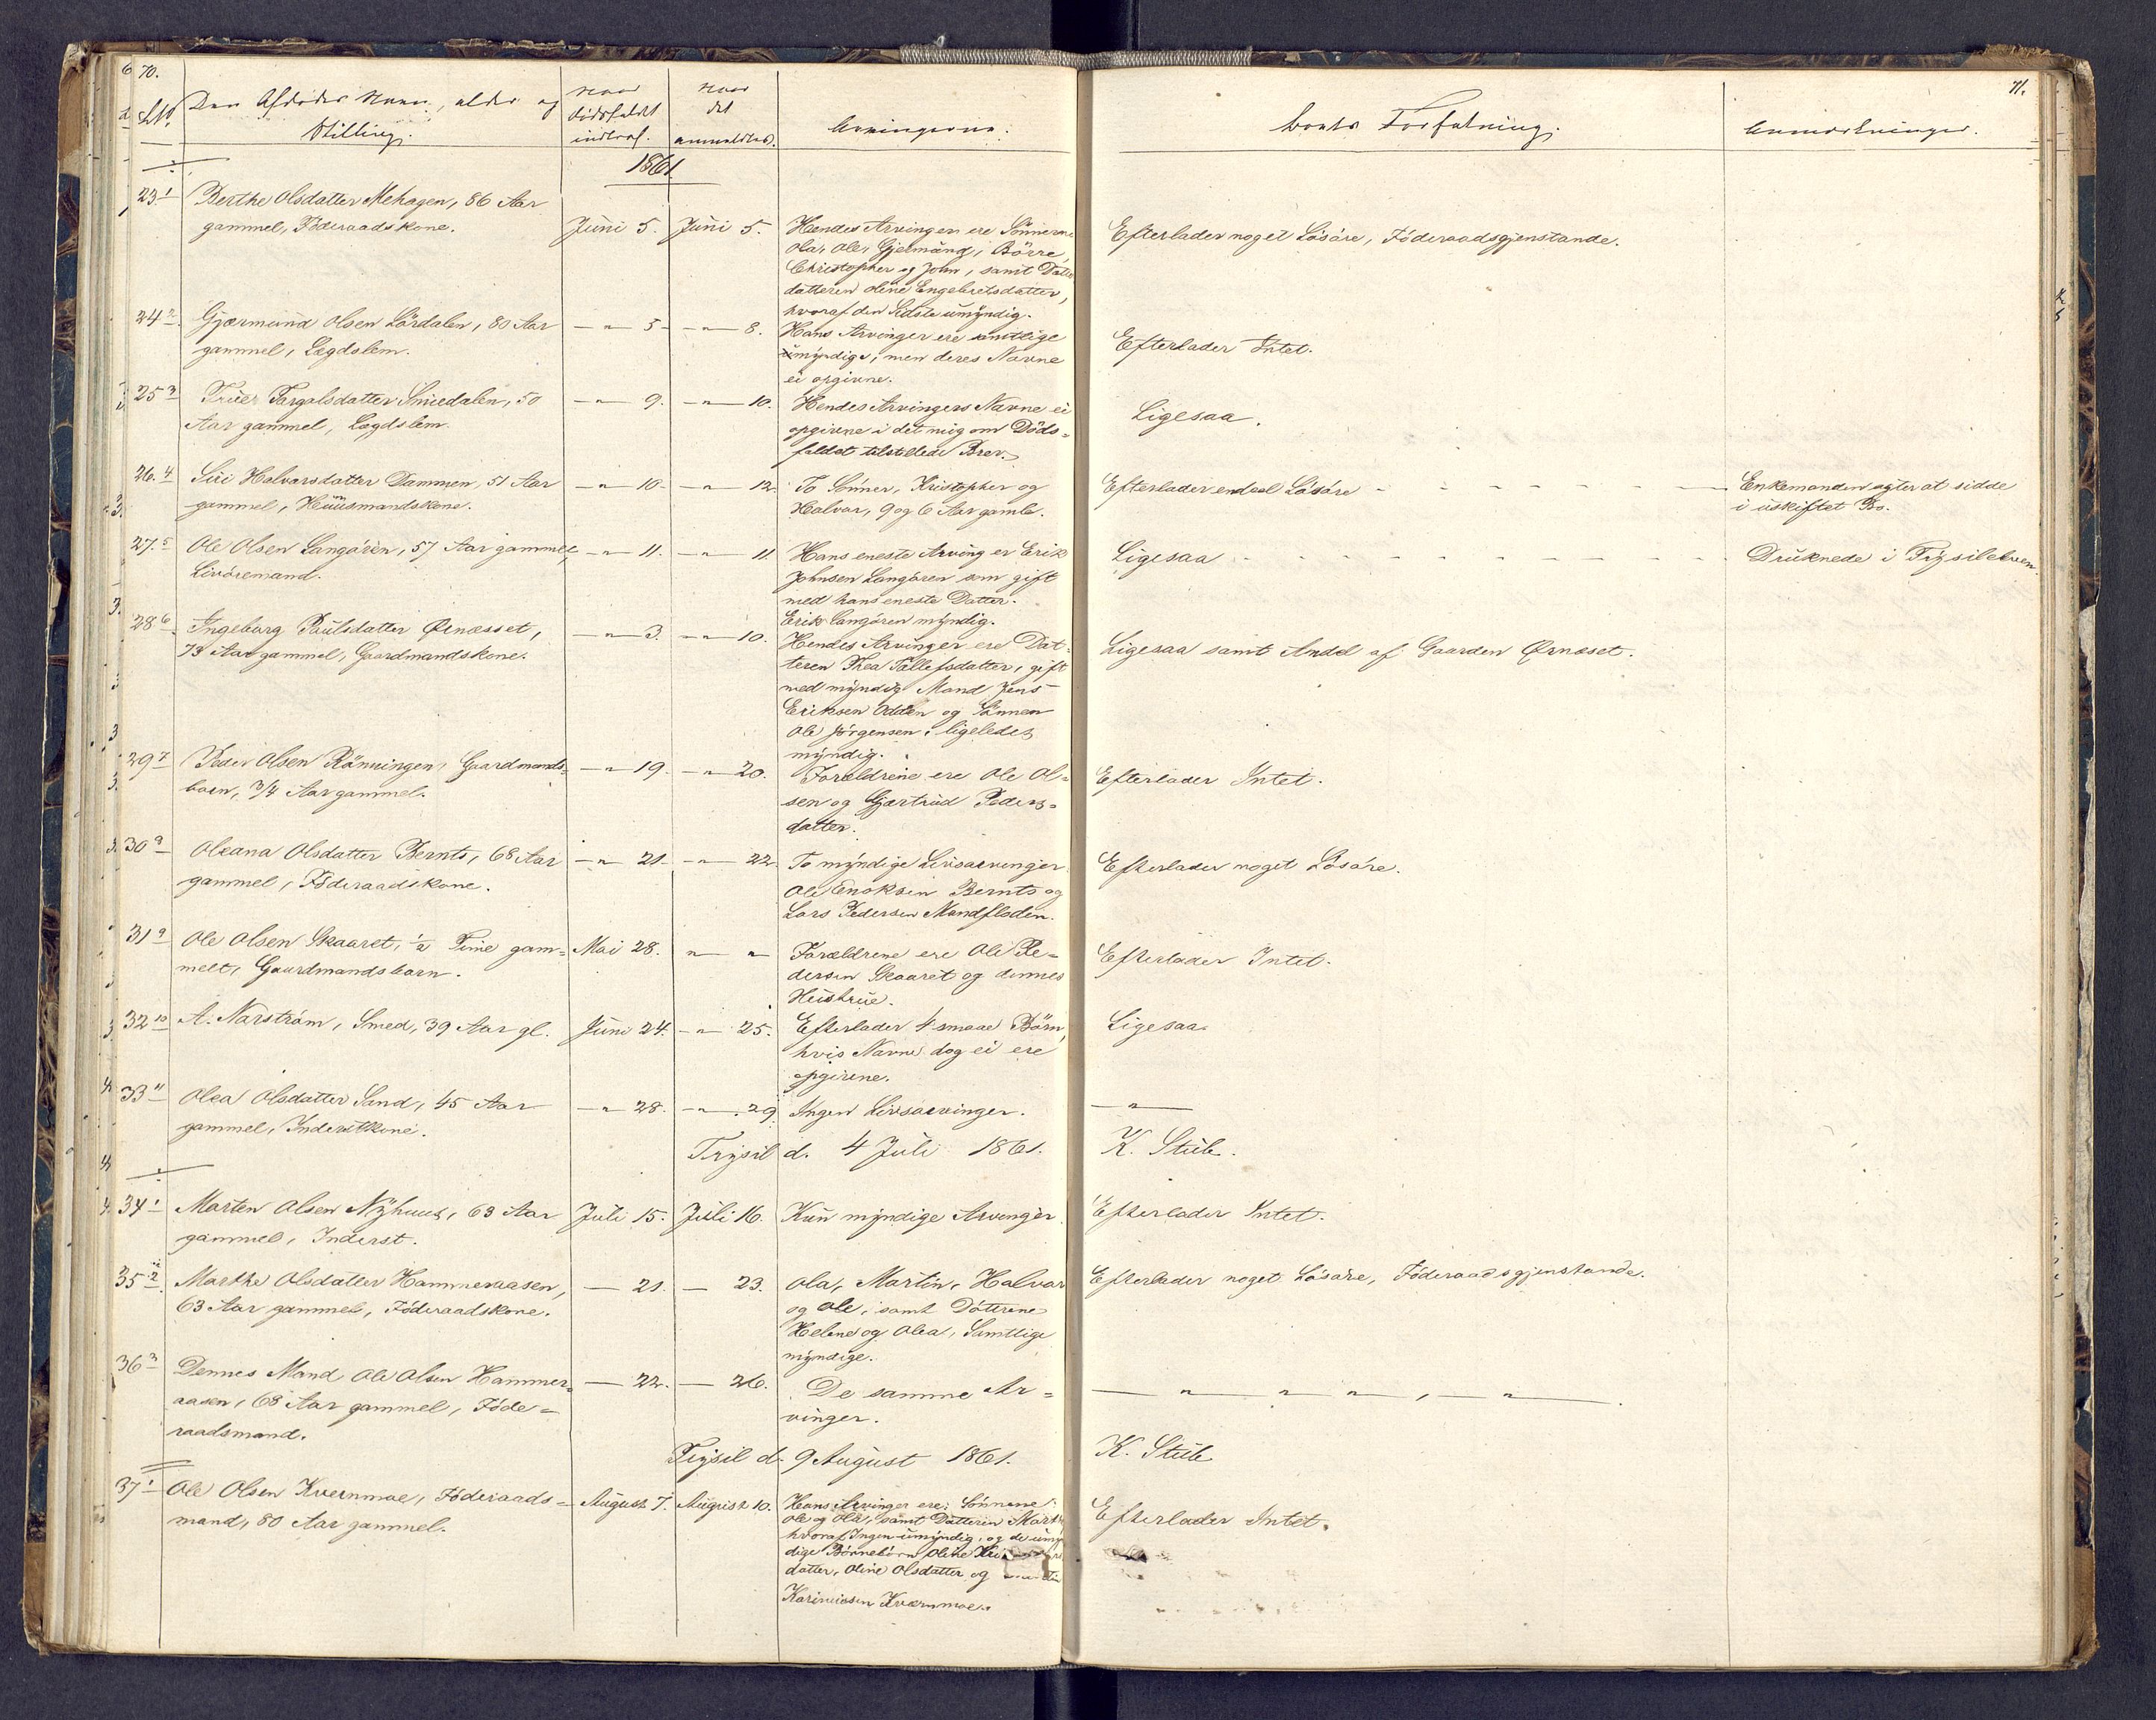 70.
No.
Den Afdødes Navn, Alder og
Stilling.
Naar
Dødsfaldet
indtraf.
Naar
det
anmeldtes.
Arvingerne.
1861.
23. 1
Berthe Olsdatter Mehagen, 86 Aar
gammel, Föderaadskone.
Juni 5.
Juni 5.
Hendes Arvinger ere Sönnerne
Ola, Ole, Gjelmünd, Börre,
Christopher og John, samt Datter
datteren Oline Engebretsdatter,
hvoraf den Sidste umyndig.
24 2
Gjærmund Olsen Lördalen, 80 Aar
gammel, Lægdslem.
— " — 5
— " — 8.
Hans Arvinger ere samtlige
umyndige, men deres Navne
ei opgivne.
25 3
Targalsdatter Smedalen, 50
Aar gammel, Lægdslem.
— " — 9.
— " — 10.
Hendes Arvingers Navne ei
opgivne i det mig om Döds=
faldet tilstillede Brev.
26. 4
Siri Halvarsdatter Dammen, 51 Aar
gammel, Huusmandskone.
— " — 10
— " — 12
To Sönner, Kristopher og
Halvar, 9 og 6 Aar gamle.
27. 5
Ole Olsen Langören, 57 Aar gammel,
Livöremand.
— " — 11.
— " — 11
Hans eneste Arving er Erik
Johnsen Langören som gift
med hans eneste Datter.
Erik Langören myndig.
28 6
Ingeborg Paulsdatter Ørnæsset,
73 Aar gammel, Gaardmandskone.
— " — 3.
— " — 10.
Hendes Arvinger ere Dat=
teren Thea Tallefsdatter, gift
med myndig Mand Jens
Eriksen Odden og Sönnen
Ole Jörgensen, ligeledes
myndig.
29 7
Peder Olsen Rönningen, Gaardmands=
barn, 3/4 Aar gammel.
— " — 19.
— " — 20.
Forældrene ere Ole Ol=
sen og Gjertrud Peders=
datter.
30 8
Oleana Olsdatter Bernts, 68 Aar
gammel, Föderaadskone.
— " — 21.
— " — 22
To myndige Livsarvinger
Ole Enoksen Bernts og
Lars Pedersen Mandfloden.
31 9
Ole Olsen Skaaret, 1/2 Time gam=
melt, Gaardmandsbarn.
Mai 28.
" "
Forældrene ere Ole Pe=
dersen Skaaret og dennes
Hustrue.
32 10
A. Narström, Smed, 39 Aar gl.
Juni 24.
— " — 25.
Efterlader 4 smaae Börn,
hvis Navne dog ei ere
opgivne.
33 11
Olea Olsdatter Sand, 45 Aar
gammel, Inderstkone.
— " — 28.
— " — 29.
Ingen Livsarvinger.
Trysil d. 4 Juli 1861.
34 1
Marten Olsen Nyhuus, 63 Aar
gammel, Inderst.
Juli 15.
Juli 16.
Kun myndige Arvinger.
35 2
Marthe Olsdatter Hammeraasen,
63 Aar gammel, Föderaadskone.
— 21.
— 23.
Ola, Martin, Halvar
og Ole, samt Döttrene
Helene og Olea, Samtlige
myndige.
36 3
Dennes Mand Ole Olsen Hammer=
aasen, 68 Aar gammel, Föde=
raadsmand.
— 22.
— 26.
De samme Ar=
vinger.
Trysil d. 9 August 1861.
37 1
Ole Olsen Kvernmoe, Föderaads=
mand, 80 Aar gammel.
August 7.
August 10.
Hans Arvinger ere: Sönnene
Ole og Ola, samt Datteren
hvoraf Ingen umyndig, og de
dige Börnebörn Oline
datter, Oline Olsdatter og
Kvernmoe.
71.
Boets Forfatning.
Anmærkninger.
Efterlader noget Lösöre, Föderaadsgjenstande.
Efterlader Intet.
Ligesaa.
Efterlader endeel Lösöre
Enkemanden agter at sidde
i uskiftet Bo.
Ligesaa
Druknede i Trysilelven.
Ligesaa samt Andel af Gaarden Ørnæset.
Efterlader Intet.
Efterlader noget Lösöre.
Efterlader Intet.
Ligesaa
— " —
K. Stub.
Efterlader Intet.
Efterlader noget Lösöre, Föderaadsgjenstande.
— " " " , — " —
K. Stub
Efterlader Intet.